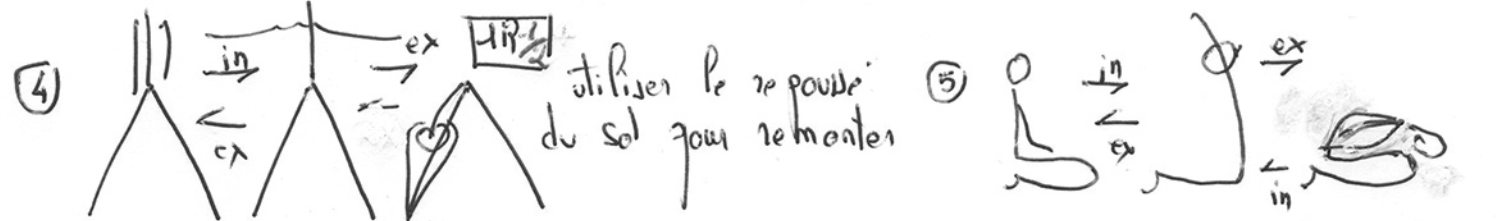 ④ in ex
ex
utiliser le repoussé
du sol pour remonter
⑤ in ex
ex in